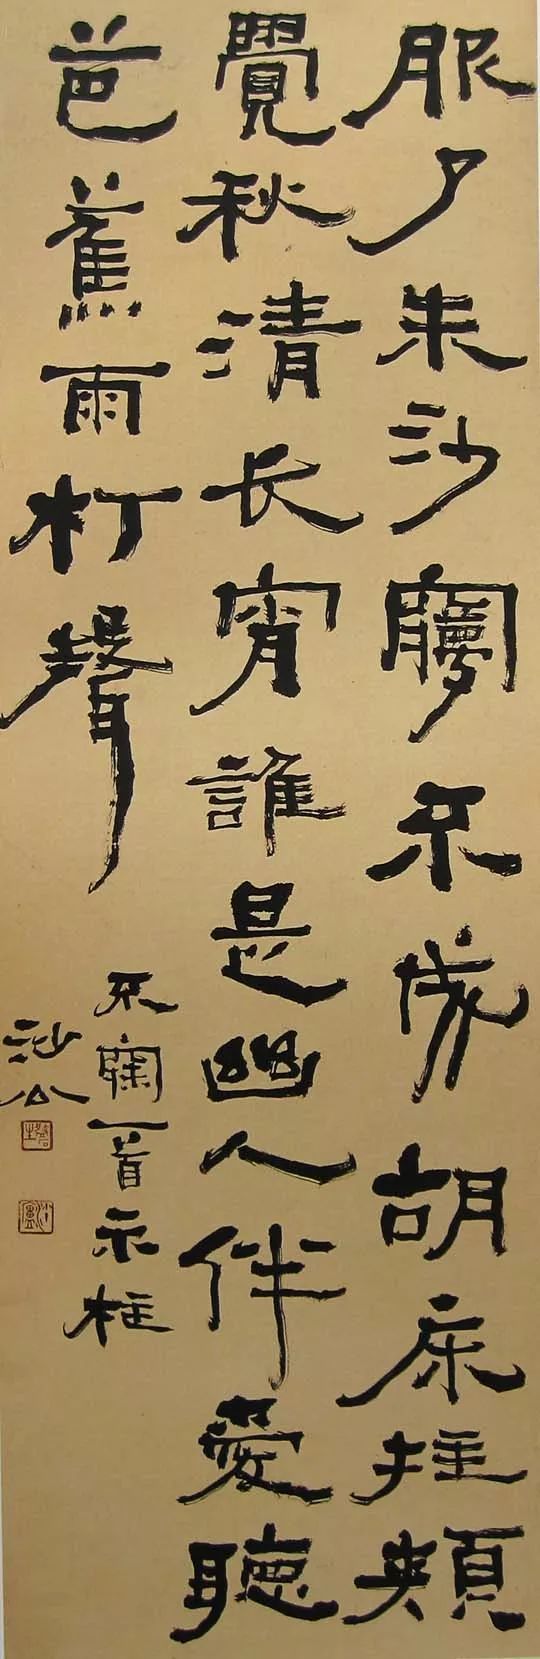 服夕朱沙㝱不成胡床拄頰
覺秋清長宵誰是幽人伴愛聽
芭蕉雨朾聲
不一首示柱
沙公